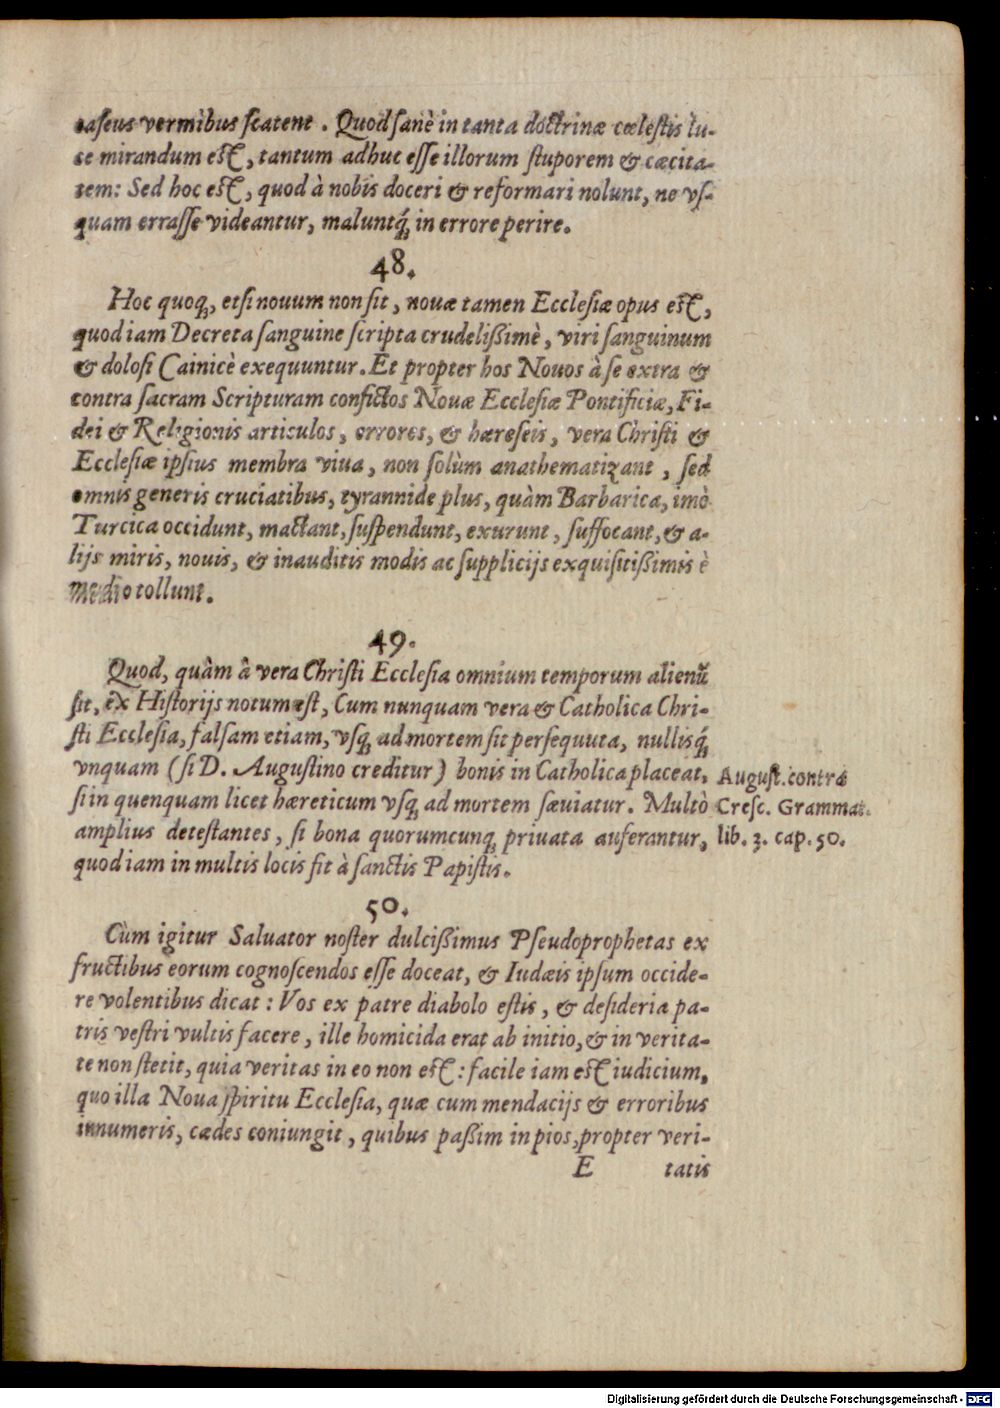 caseus vermibus scatent. Quod sanè in tanta doctrinæ cœlestis lu-
ce mirandum est, tantum adhuc esse illorum stuporem & cæcita-
tem: Sed hoc est, quod à nobis doceri & reformari nolunt, ne vs-
quam errasse videantur, maluntq́ꝫ in errore perire.
48.
Hoc quoqꝫ, etsi nouum non sit, nouæ tamen Ecclesiæ opus est,
quod iam Decreta sanguine scripta crudelißimè, viri sanguinum
& dolosi Cainicè exequuntur. Et propter hos Nouos à se extra &
contra sacram Scripturam confictos Nouæ Ecclesiæ Pontificiæ, Fi-
dei & Religionis articulos, errores, & hæreseis, vera Christi &
Ecclesiæ ipsius membra viua, non solùm anathematizant, sed
omnis generis cruciatibus, tyrannide plus, quàm Barbarica, imò
Turcica occidunt, mactant, suspendunt, exurunt, suffocant, & a-
lijs miris, nouis, & inauditis modis ac supplicijs exquisitißimis è
medio tollunt.
49.
Quod, quàm à vera Christi Ecclesia omnium temporum alienũ
sit, ex Historijs notum est, Cum nunquam vera & Catholica Chri-
sti Ecclesia, falsam etiam, vsqꝫ ad mortem sit persequuta, nullisq́ꝫ
vnquam (si D. Augustino creditur) bonis in Catholica placeat,
si in quenquam licet hæreticum vsqꝫ ad mortem sæuiatur. Multò
amplius detestantes, si bona quorumcunqꝫ priuata auferantur,
quod iam in multis locis fit à sanctis Papistis.
August. contra
Cresc. Grammat.
lib. 3. cap. 50.
50.
Cùm igitur Saluator noster dulcißimus Pseudoprophetas ex
fructibus eorum cognoscendos esse doceat, & Iudæis ipsum occide-
re volentibus dicat: Vos ex patre diabolo estis, & desideria pa-
tris vestri vultis facere, ille homicida erat ab initio, & in verita-
te non stetit, quia veritas in eo non est: facile iam est iudicium,
quo illa Noua spiritu Ecclesia, quæ cum mendacijs & erroribus
innumeris, cædes coniungit, quibus paßim in pios, propter veri-
E tatis
Digitalisierung gefördert durch die Deutsche Forschungsgemeinschaft - DFG